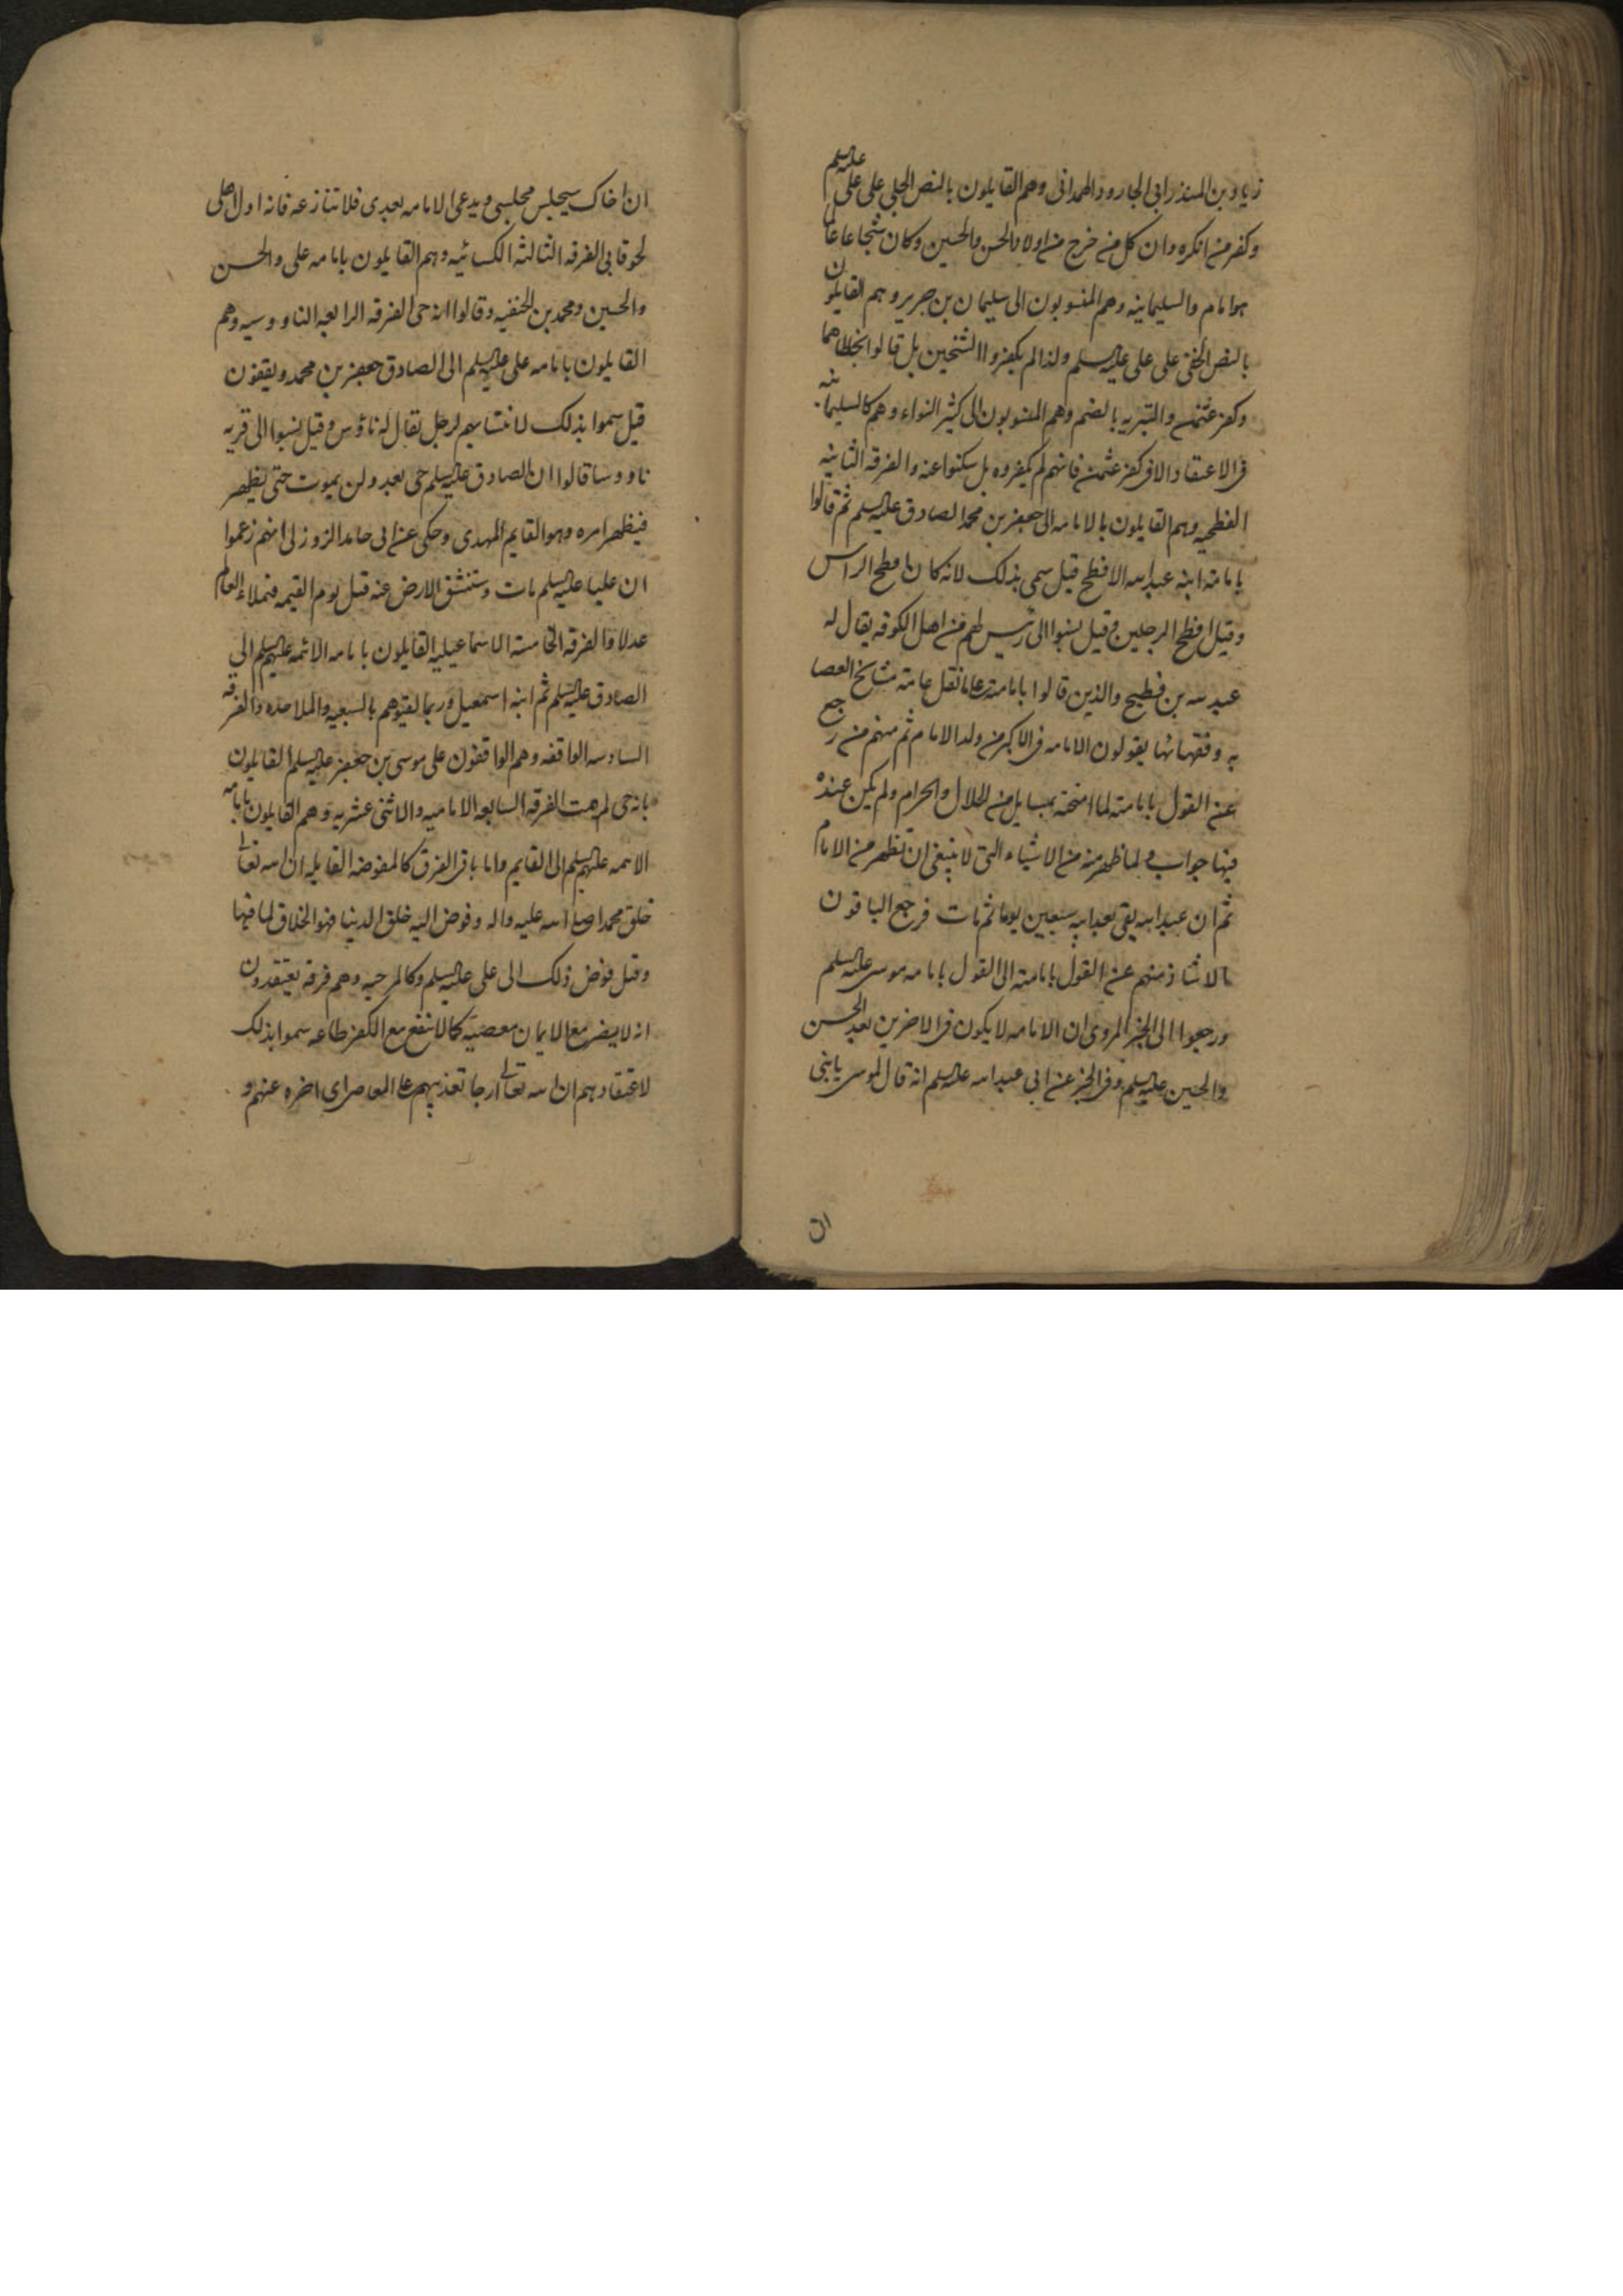 زیاد بن المنذر ابی الجارود الهمدانی وهم القایلون بالنص الجلی علی علی علیه السلم
وکفر من انکره وان کل من خرج من اولاد الحسن والحسین وکان شجاعا عالما
هو امام والسلیمانیه وهم المنسوبون الی سلیمان بن جریر وهم القایلون
بالنص الخفی علی علی علیه السلم ولذا لم یکفروا الشیخین بل قالوا بخطاهما
وکفر عثمن والتبریه بالضم وهم المنسوبون الی کثیر النواء وهم کالسلیمانیه
فی الاعتقاد الا فی کفر عثمن فانهم لم یکفروه بل سکتوا عنه والفرقه الثانیه
الفطحیه وهم القایلون بالامامه الی جعفر بن محمد الصادق علیه السلم ثم قالوا
بامامة ابنه عبد الله الافطح قیل سمی بذلک لانه کان افطح الراس
وقیل افطح الرجلین وقیل نسبوا الی رئیس لهم من اهل الکوفه یقال له
عبد الله بن فطیح والذین قالوا بامامته علی ما نقل عامة مشایخ العصا
به وفقهائها یقولون الامامه فی الاکبر من ولد الامام ثم منهم من رجع
عن القول بامامته لما امتحنه بمسایل من الحلال والحرام ولم یکن عنده
فیها جواب ولما ظهر منه من الاشیاء التی لا ینبغی ان تظهر من الامام
ثم ان عبد الله بقی بعد ابیه سبعین یوما ثم مات فرجع الباقون
الا شاذ منهم عن القول بامامته الی القول بامامه موسی علیه السلم
ورجعوا الی الخبر المروی ان الامامه لا یکون فی الاخرین بعد الحسن
والحسین علیه السلم وفی الخبر عن ابی عبد الله علیه السلم انه قال لموسی یا بنی
ان
ان اخاک سیجلس مجلسی ویدعی الامامه بعدی فلا تنازعه فانه اول اهلی
لحوقا بی الفرقه الثالثه الکسائیه وهم القایلون بامامه علی والحسن
والحسین ومحمد بن الحنفیه وقالوا انه حی الفرقه الرابعه الناووسیه وهم
القایلون بامامه علی علیه السلم الی الصادق جعفر بن محمد ویقفون
قیل سموا بذلک لانتسابهم لرجل یقال له ناؤس وقیل نسبوا الی قریه
ناووسا قالوا ان الصادق علیه السلم حی بعد ولن یموت حتی یظهر
فیظهر امره وهو القایم المهدی وحکی عن ابی حامد الزوزنی انهم زعموا
ان علیا علیه السلم مات وستنشق الارض عنه قبل یوم القیمه فیملاء العالم
عدلا والفرقه الخامسة الاسماعیلیه القایلون بامامه الائمه علیهم السلم الی
الصادق علیه السلم ثم ابنه اسمعیل وربما لقبوهم بالسبعیه والملاحده والفرقه
السادسه الواقفه وهم الواقفون علی موسی بن جعفر علیه السلم القایلون
بانه حی لم یمت الفرقه السابعه الامامیه والاثنی عشریه وهم القایلون بامامه
الائمه علیهم السلم الی القایم واما باقی الفرق کالمفوضه القایله ان الله تعالی
خلق محمدا صلی الله علیه واله وفوض الیه خلق الدنیا فهو الخلاق لما فیها
وقیل فوض ذلک الی علی علیه السلم وکالمرجیه وهم فرقه یعتقدون
انه لا یضر مع الایمان معصیة کما لا تنفع مع الکفر طاعه سموا بذلک
لاعتقادهم ان الله تعالی ارجا تعذیبهم علی المعاصی ای اخره عنهم و